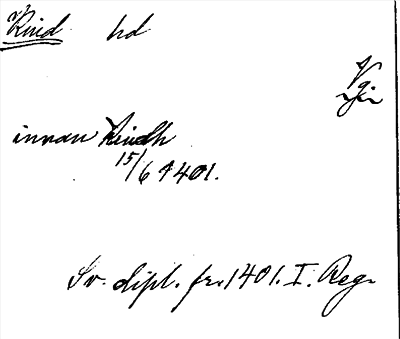 Kind hd
Vg
innan Kindh
15/6 1401.
Sv. dipl. fr. 1401. I. Reg.